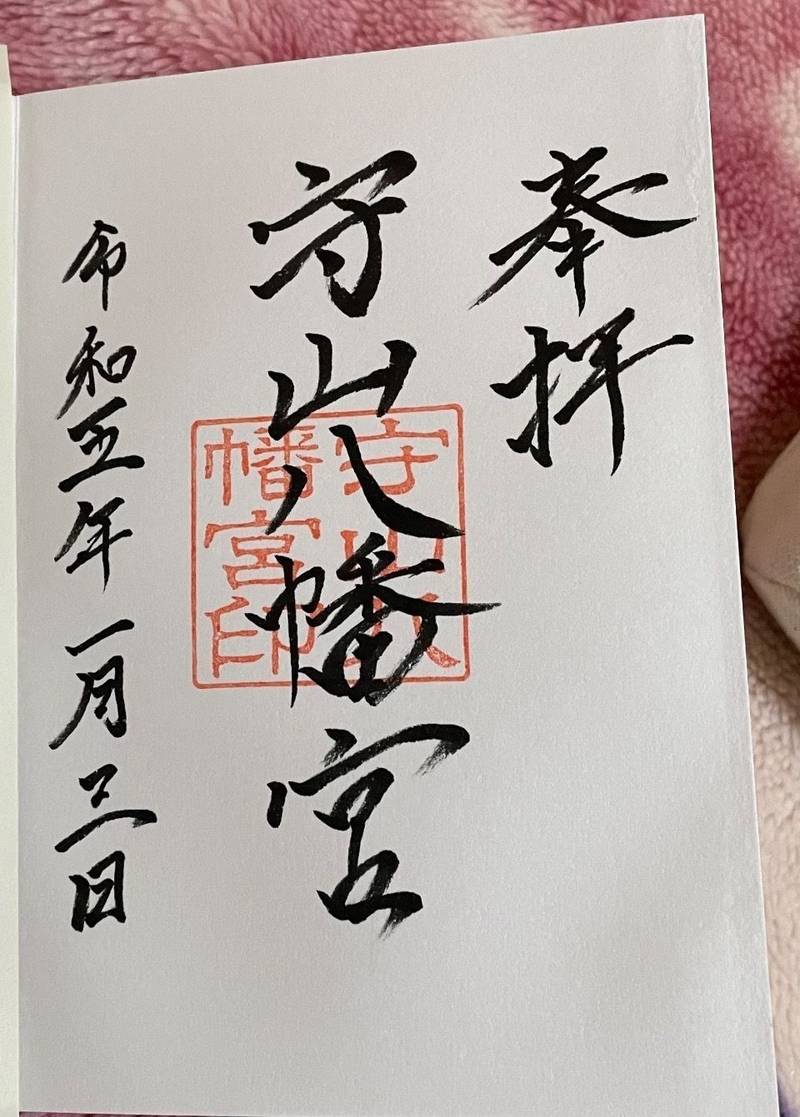 奉拝
守山八幡宮
守山八
幡宮印
令和五年一月三日